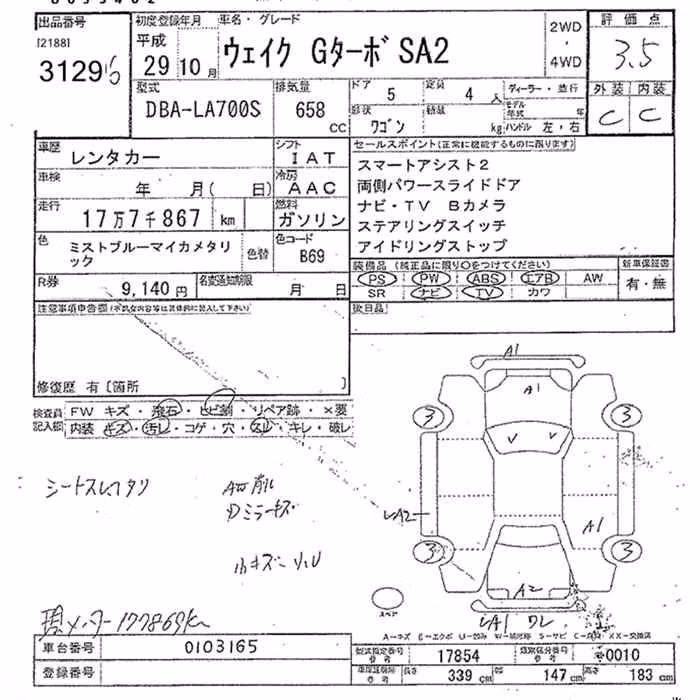 出品番号
[2188]
初度登録年月
平成
29 10月
車名・グレード
ウェイク Gターボ SA2
2WD
・
4WD
評価点
3.5
型式
DBA-LA700S
排気量
658
CC
ドア
5
定員
4 人
ディーラー・並行
外装 内装
C C
形状
ワゴン
積載
kg
モデル年式 年
ハンドル 左・右
車歴
レンタカー
シフト
IAT
セールスポイント(正常に機能するものに限ります)
スマートアシスト2
両側パワースライドドア
ナビ・TV Bカメラ
ステアリングスイッチ
アイドリングストップ
車検
年 月( 日)
冷房
AAC
走行
17万7千867 km
燃料
ガソリン
色
ミストブルーマイカメタリック
色替
色コード
B69
装備品 (純正品に限り○をつけてください)
PS PW ABS エアB AW
SR ナビ TV カワ
新車保証書
有・無
R券
9,140円
名変通知期限
月 日
注意事項申告欄
後日品
修復歴 有〔箇所 〕
検査員記入欄
FW キズ・飛石・ヒビ割・リペア跡・×要
内装 キズ・汚レ・コゲ・穴・スレ・キレ・破レ
シートスレヘタリ
AW削レ
Dミラーキズ
小キズ
現メーター177869km
A1
A1
3 3
V V
LA2
A1
3 3
A2
LA1 ワレ
スペア
車台番号
0103165
登録番号
型式指定番号
参考
17854
類別区分番号
参考
0010
長さ
339 cm
幅
147 cm
高さ
183 cm